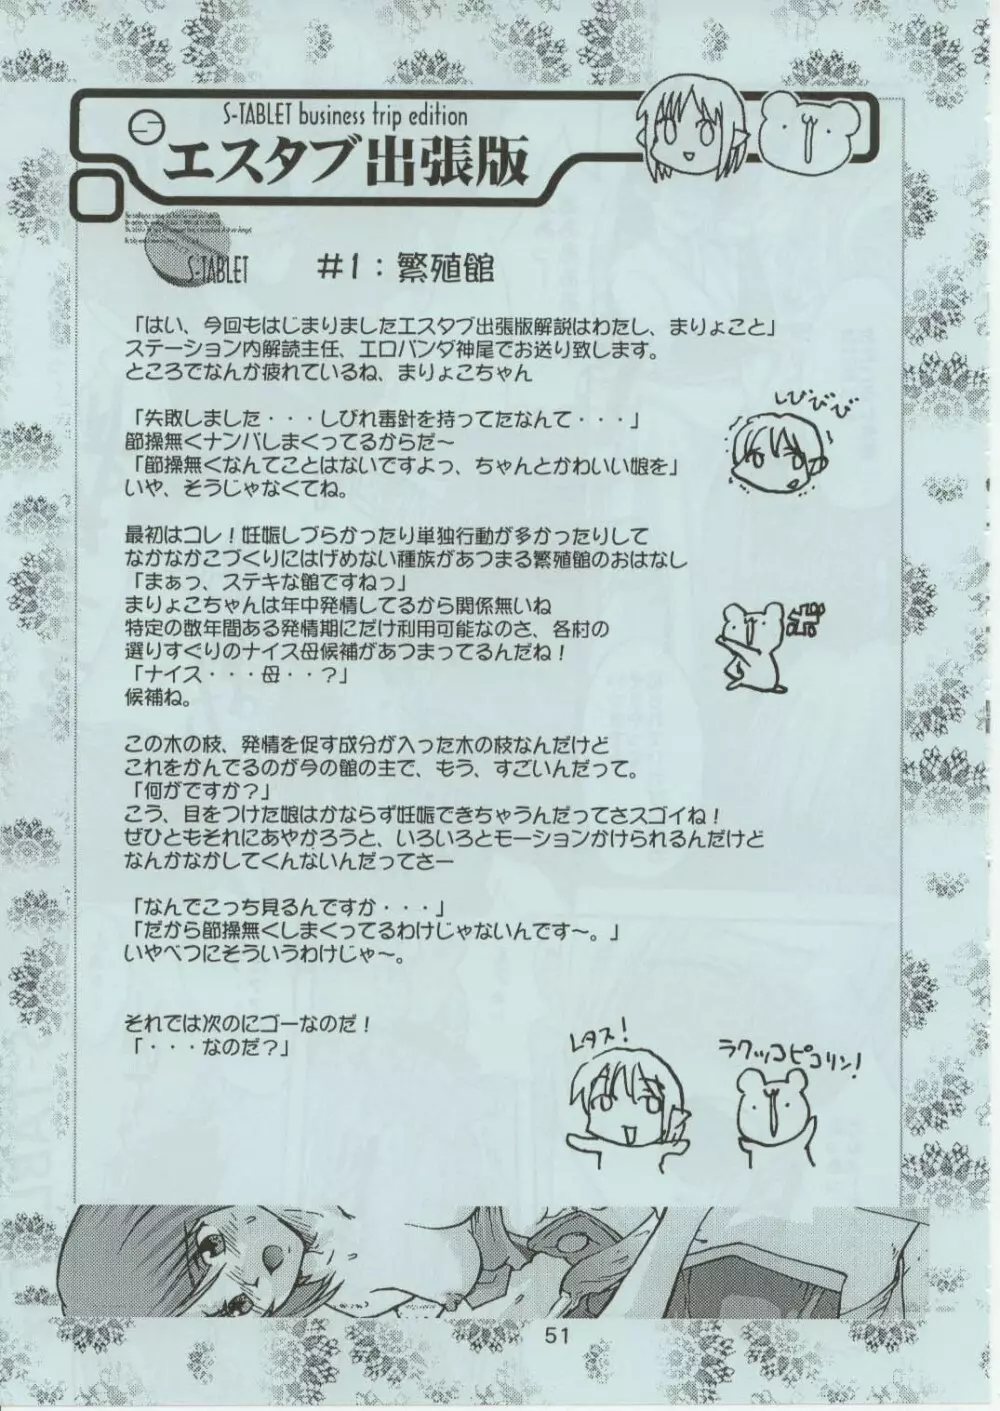 S-TABLET business trip edition
エスタブ出張版
S-TABLET
#1:繁殖館
「はい、今回もはじまりましたエスタブ出張版解説はわたし、まりょこと」
ステーション内解読主任、エロパンダ神尾でお送り致します。
ところでなんか疲れているね、まりょこちゃん
「失敗しました・・・しびれ毒針を持ってたなんて・・・」
しびびび
節操無くナンパしまくってるからだ〜
「節操無くなんてことはないですよっ、ちゃんとかわいい娘を」
いや、そうじゃなくてね。
最初はコレ!妊娠しづらかったり単独行動が多かったりして
なかなかこづくりにはげめない種族があつまる繁殖館のおはなし
「まぁっ、ステキな館ですねっ」
まりょこちゃんは年中発情してるから関係無いね
特定の数年間ある発情期にだけ利用可能なのさ、各村の
選りすぐりのナイス母候補があつまってるんだね!
「ナイス・・・母・・?」
候補ね。
この木の枝、発情を促す成分が入った木の枝なんだけど
これをかんでるのが今の館の主で、もう、すごいんだって。
「何がですか?」
こう、目をつけた娘はかならず妊娠できちゃうんだってさスゴイね!
ぜひともそれにあやかろうと、いろいろとモーションかけられるんだけど
なんかなかしてくんないんだってさー
「なんでこっち見るんですか・・・」
「だから節操無くしまくってるわけじゃないんです〜。」
いやべつにそういうわけじゃ〜。
それでは次のにゴーなのだ!
「・・・なのだ?」
レタス!
ラクッコピコリン!
51